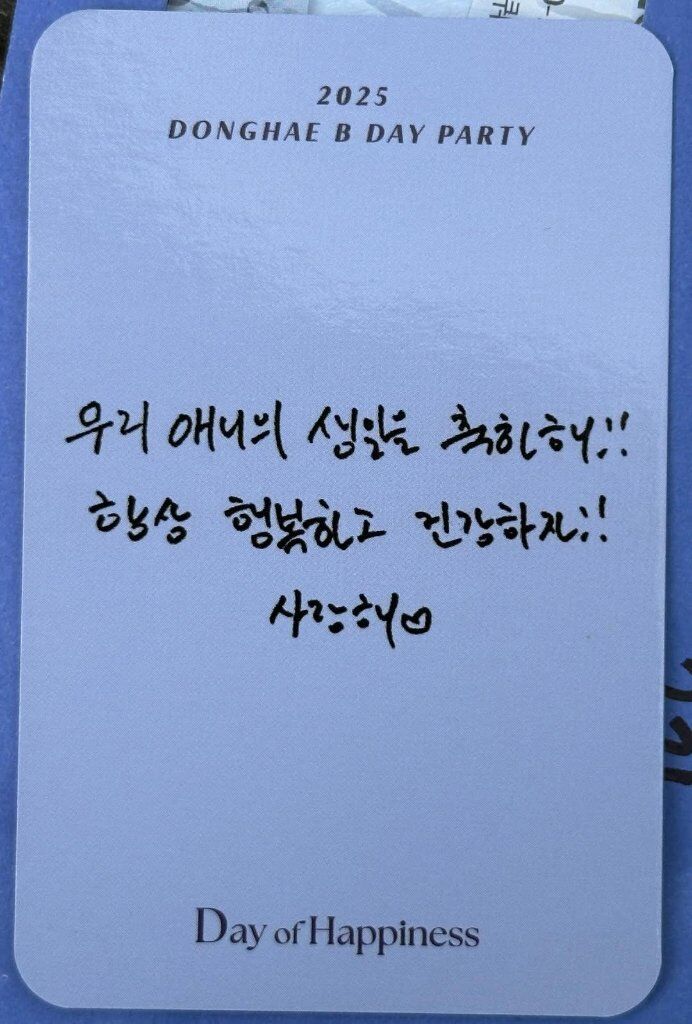 2025
DONGHAE B DAY PARTY
우리 애니의 생일을 축하해!!
항상 행복하고 건강하자!!
사랑해♡
Day of Happiness